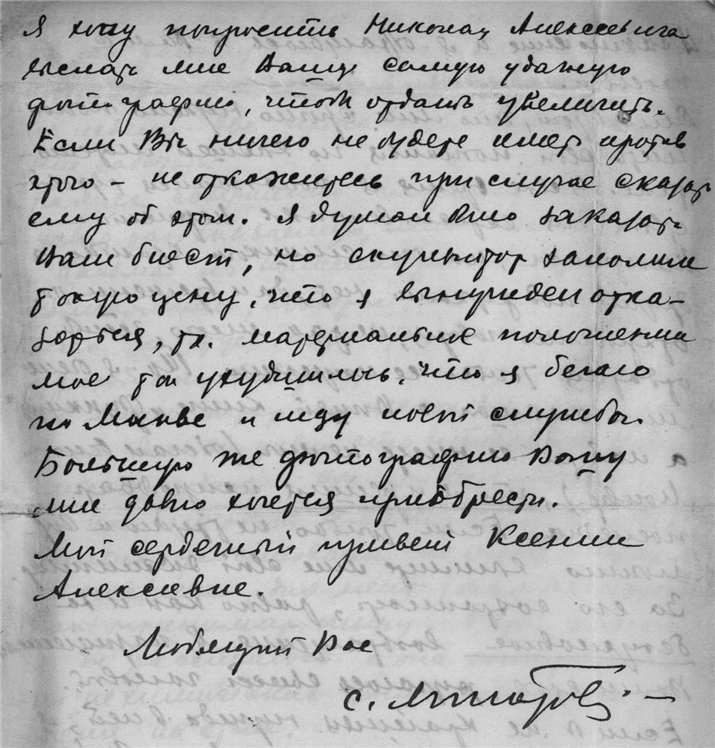 Я хочу попросить Николая Алексеевича
выслать мне Вашу самую удачную
фотографию, чтоб отдать увеличить.
Если Вы ничего не будете иметь против
этого – не откажитесь при случае сказать
ему об этом. Я думал было заказать
Ваш бюст, но скульптор заломил
такую цену, что я вынужден отка-
заться, т.к. материальное положение
мое так ухудшилось, что я бегаю
по Москве и ищу новой службы.
Большую же фотографию Вашу
мне давно хочется приобрести.
Мой сердечный привет Ксении
Алексеевне.
Любящий Вас
С.